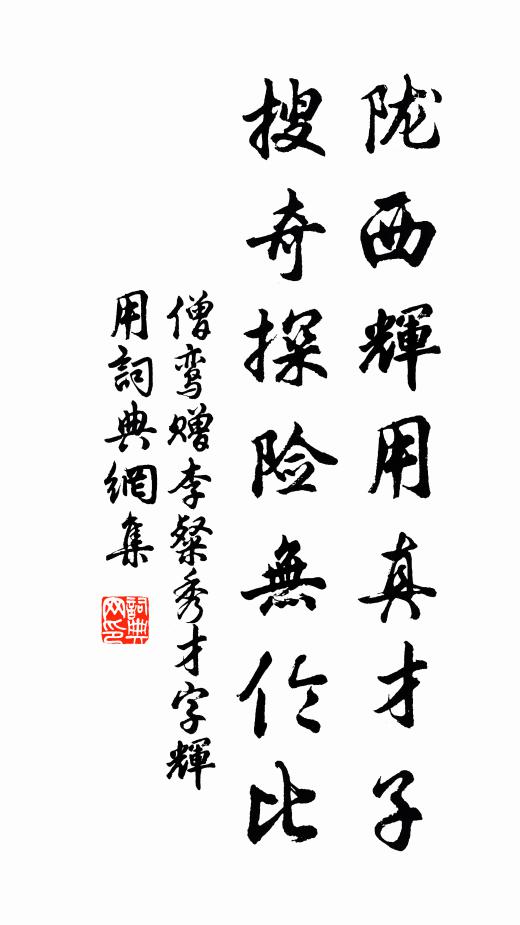 陇西輝用真才子
搜奇探险無伦比
僧鸾赠李粲秀才字輝
用詞典網集
詞典
网印